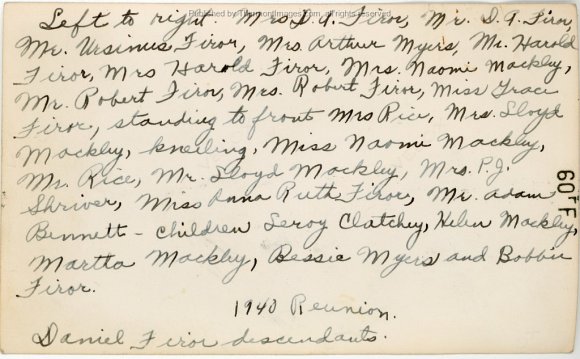 Published by ThurmontImages.com, all rights reserved
Left to right: Mrs. D.A. Firor, Mr. D.A. Firor,
Mr. Ursinus Firor, Mrs. Arthur Myers, Mr. Harold
Firor, Mrs Harold Firor, Mrs. Naomi Mackley,
Mr. Robert Firor, Mrs. Robert Firor, Miss Grace
Firor, standing to front Mrs Rice, Mrs. Lloyd
Mackley, kneeling, Miss Naomi Mackley,
Mr. Rice, Mr. Lloyd Mackley, Mrs. P.J.
Shriver, Miss Anna Ruth Firor, Mr. Adam
Bennett - children Leroy Clatchey, Helen Mackley,
Martha Mackley, Bessie Myers and Bobbie
Firor.
1940 Reunion.
Daniel Firor descendants.